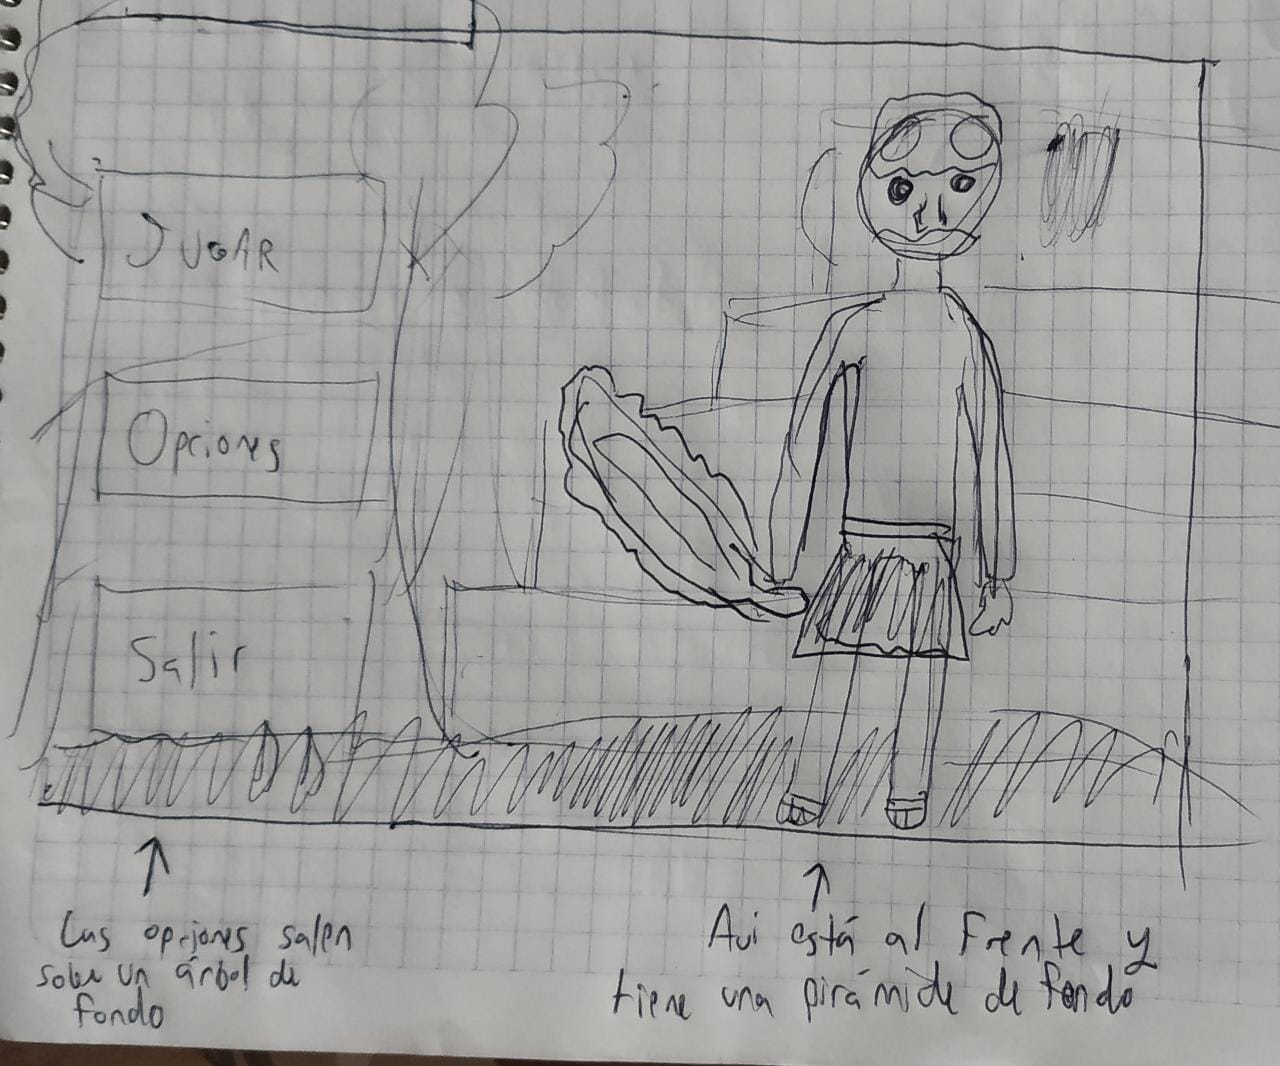 JUGAR
Opciones
Salir
Las opciones salen
sobre un árbol de
fondo
Avi está al Frente y
tiene una pirámide de fondo